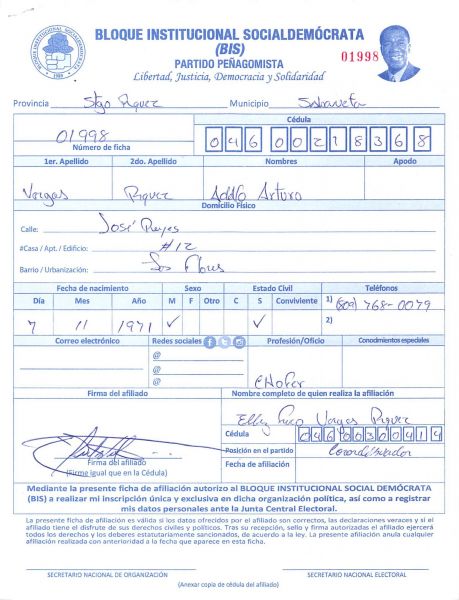 BLOQUE INSTITUCIONAL SOCIALDEMÓCRATA
(BIS)
PARTIDO PEÑAGOMISTA
Libertad, Justicia, Democracia y Solidaridad
01998
BLOQUE INSTITUCIONAL SOCIALDEMOCRATA
Provincia Municipio
Cédula
01998 046 0021836 8
Número de ficha
1er. Apellido 2do. Apellido Nombres Apodo
Vargas Adolfo Arturo
Domicilio Físico
Calle: José Reyes
#Casa / Apt. / Edificio: #12
Barrio / Urbanización: Los Flores
Fecha de nacimiento Sexo Estado Civil Teléfonos
Día Mes Año M F Otro C S Conviviente 1) (809) 768-0079
7 11 1971 ✓ ✓ 2)
Correo electrónico Redes sociales Profesión/Oficio Conodmientos especiales
@
@
@ CHOFER
Firma del afiliado Nombre completo de quien realiza la afiliación
Vargas
Cédula 046 0030041 4
Posición en el partido Coordinador
Firma del afiliado Fecha de afiliación
(Firme igual que en la Cédula)
Mediante la presente ficha de afiliación autorizo al BLOQUE INSTITUCIONAL SOCIAL DEMÓCRATA
(BIS) a realizar mi inscripción única y exclusiva en dicha organización política, así como a registrar
mis datos personales ante la Junta Central Electoral.
La presente ficha de afiliación es válida si los datos ofrecidos por el afiliado son correctos, las declaraciones veraces y si el
afiliado tiene el disfrute de sus derechos civiles y políticos. Tras su recepción, sello y firma autorizadas el afiliado ejercerá
todos los derechos y los deberes estatutariamente sancionados, de acuerdo a la ley. La presente afiliación anula cualquier
afiliación realizada con anterioridad a la fecha que aparece en esta ficha.
SECRETARIO NACIONAL DE ORGANIZACIÓN SECRETARIO NACIONAL ELECTORAL
(Anexar copia de cédula del afiliado)